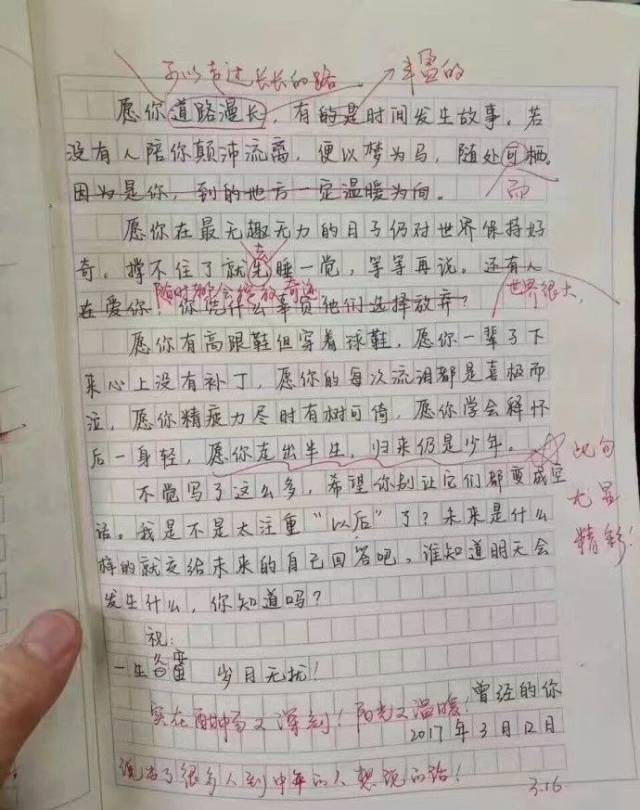 可以走过长长的路 丰盈的
愿你道路漫长，有的是时间发生故事。若
没有人陪你颠沛流离，便以梦为马，随处可栖。
因为是你，到的地方一定温暖为向。 而
愿你在最无趣无力的日子仍对世界保持好
奇。撑不住了就先睡一觉，等等再说。还有人
去
随时都会 奇迹 世界很大，
在爱你，你凭什么辜负他们选择放弃？
愿你有高跟鞋但穿着球鞋，愿你一辈子下
来心上没有补丁，愿你的每次流泪都是喜极而
泣，愿你精疲力尽时有树可倚，愿你学会释怀
后一身轻，愿你走出半生，归来仍是少年。
此句
尤显
精彩！
不觉写了这么多，希望你别让它们都变成空
话。我是不是太注重“以后”了？未来是什么
样的就交给未来的自己回答吧，谁知道明天会
发生什么，你知道吗？
祝：
一生 岁月无扰！
曾经的你
实在 又深刻！阳光又温暖！
2017年3月12日
说出了很多人到中年的人想说的话！
3.16